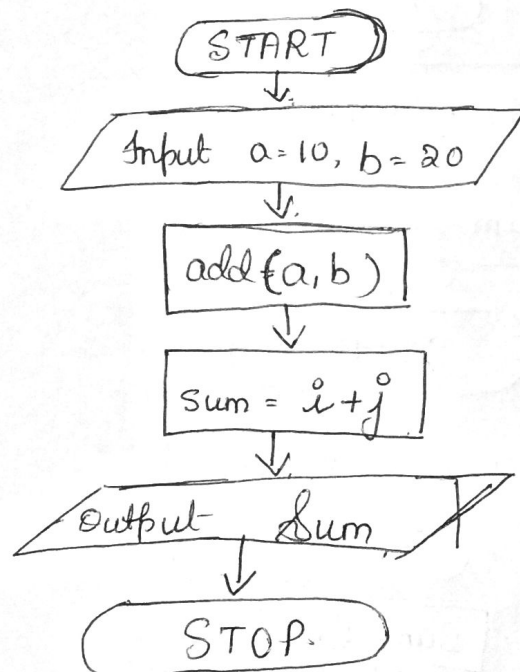 START
Input a=10, b=20
add(a,b)
sum = i+j
Output Sum
STOP.